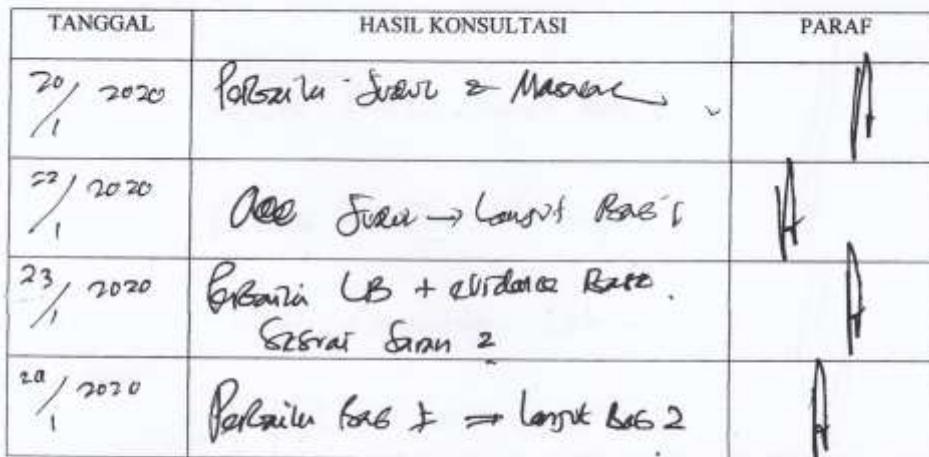 TANGGAL HASIL KONSULTASI PARAF
20/1 2020 Perbaiki Judul & Masalah
22/1 2020 Acc Judul → Lanjut Bab 1
23/1 2020 Perbaiki LB + evidence Base.
Sesuai Saran 2
/1 2020 Perbaiki Bab 1 ⇒ lanjut Bab 2